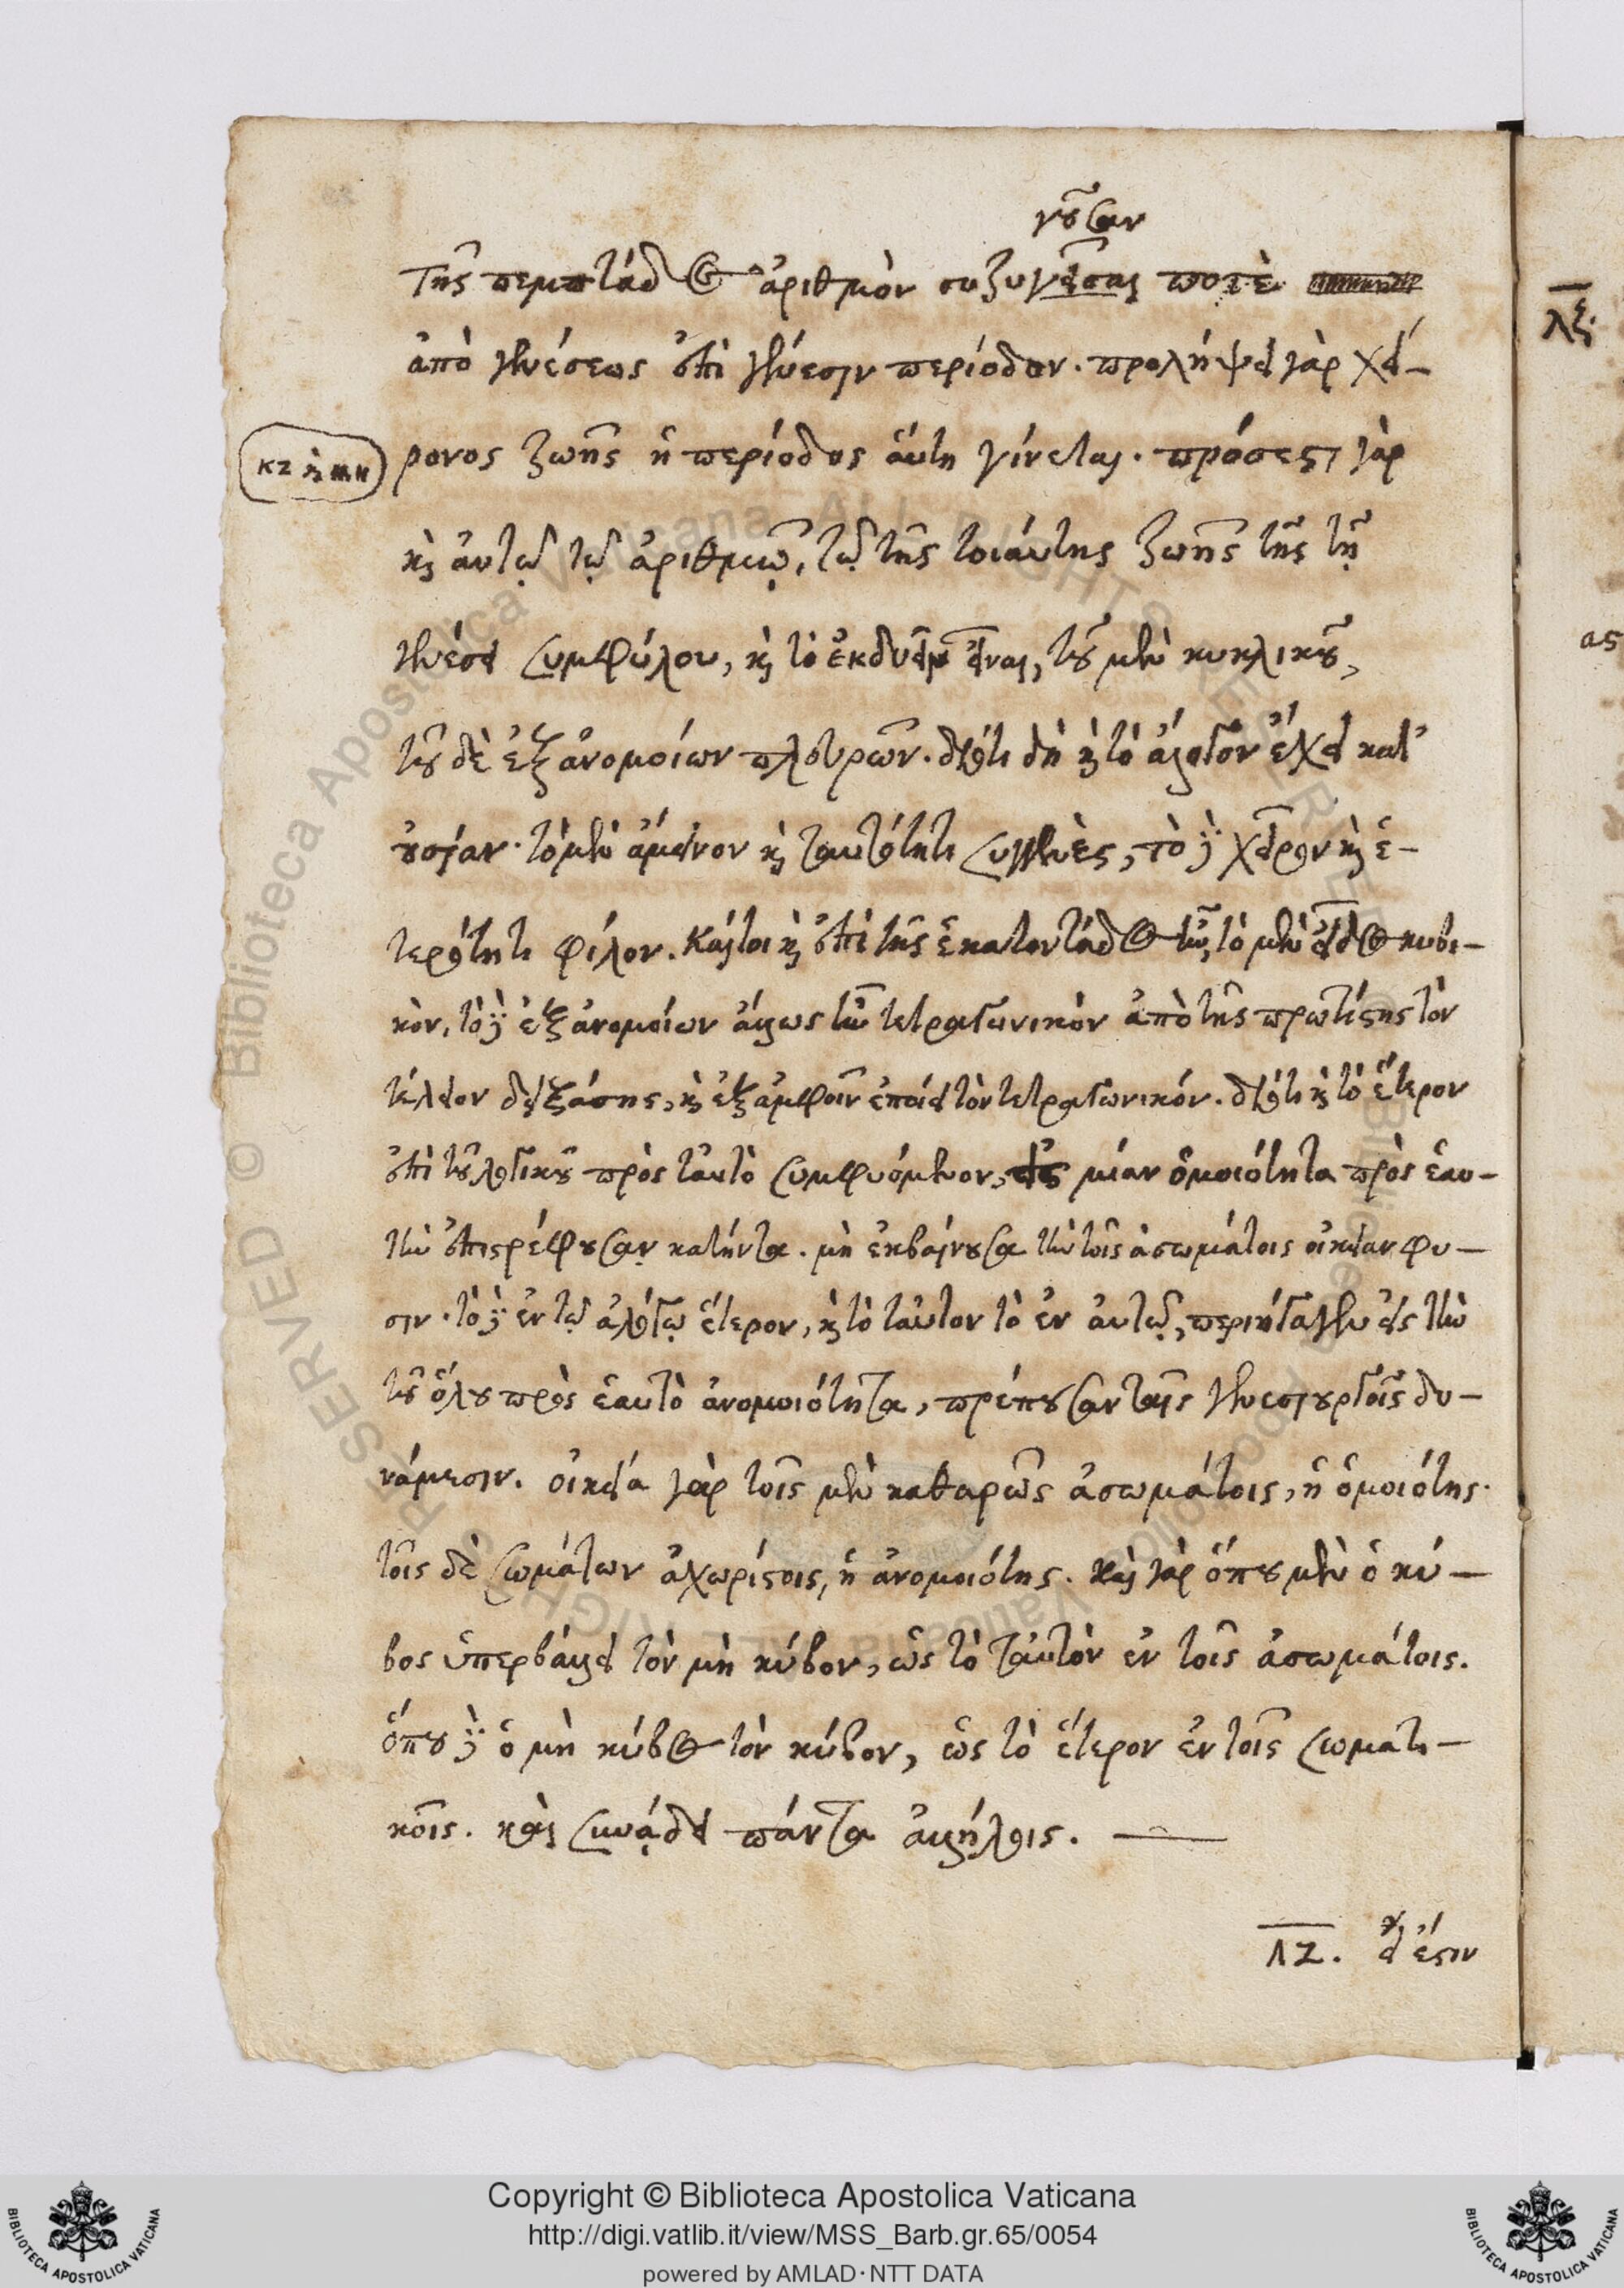 γοῦσαν
τῆς πεμπτάδος ἀριθμὸν συζυγείσας ποτὲ
ἀπὸ γενέσεως ἐπὶ γένεσιν περίοδον. προλήψει γὰρ χεί-
ρονος ζωῆς ἡ περίοδος αὕτη γίνεται. πρόσεστι γὰρ
κζ καὶ κη
καὶ αὐτῷ τῷ ἀριθμῷ, τῷ τῆς τοιαύτης ζωῆς τῆς τῇ
γενέσει συμφύλου, καὶ τὸ ἐκ δυεῖν εἶναι, τοῦ μὲν κυκλικοῦ,
τοῦ δὲ ἐξ ἀνομοίων πλευρῶν. διότι δὴ καὶ τὸ ἄλογον ἔχει κατ'
οὐσίαν. τὸ μὲν ἄμεινον καὶ ταυτότητι συγγενὲς, τὸ δὲ χεῖρον καὶ ἑ-
τερότητι φίλον. καίτοι καὶ ἐπὶ τῆς ἑκατοντάδος ἦν τὸ μὲν εἶδος κυβι-
κὸν, τὸ δὲ ἐξ ἀνομοίων ἄλλως ἦν τετραγωνικὸν ἀπὸ τῆς πρωτίστης τὸν
τέλειον δειξάσης, καὶ ἐξ ἀμφοῖν ἐποίει τὸν τετραγωνικόν. διότι καὶ τὸ ἕτερον
ἐπὶ τοῦ λογικοῦ πρὸς ταὐτὸ συμφυόμενον, εἰς μίαν ὁμοιότητα πρὸς ἑαυ-
τὴν ἐπιστρέφουσαν κατήντα. μὴ ἐκβαίνουσα τὴν τοῖς ἀσωμάτοις οἰκείαν φύ-
σιν. τὸ δὲ ἐν τῷ ἀλόγῳ ἕτερον, καὶ τὸ ταὐτὸν τὸ ἐν αὐτῷ, περιήγαγεν εἰς τὴν
τοῦ ὅλου πρὸς ἑαυτὸ ἀνομοιότητα, πρέπουσαν ταῖς γενεσιουργοῖς δυ-
νάμεσιν. οἰκεία γὰρ τοῖς μὲν καθαρῶς ἀσωμάτοις, ἡ ὁμοιότης.
τοῖς δὲ σωμάτων ἀχωρίστοις, ἡ ἀνομοιότης. καὶ γὰρ ὅπου μὲν ὁ κύ-
βος ὑπερβάλλει τὸν μὴ κύβον, ὡς τὸ ταὐτὸν ἐν τοῖς ἀσωμάτοις.
ὅπου δὲ ὁ μὴ κύβος τὸν κύβον, ὡς τὸ ἕτερον ἐν τοῖς σωματι-
κοῖς. καὶ συνᾴδει πάντα ἀλλήλοις.
λζ. εἰ δ' ἔστιν
λξ.
ας
Copyright © Biblioteca Apostolica Vaticana
http://digi.vatlib.it/view/MSS_Barb.gr.65/0054
powered by AMLAD·NTT DATA
BIBLIOTECA APOSTOLICA VATICANA
BIBLIOTECA APOSTOLICA VATICANA